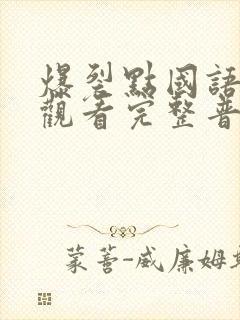 爆裂點國語
觀看完整普
蒙善-威廉姆斯